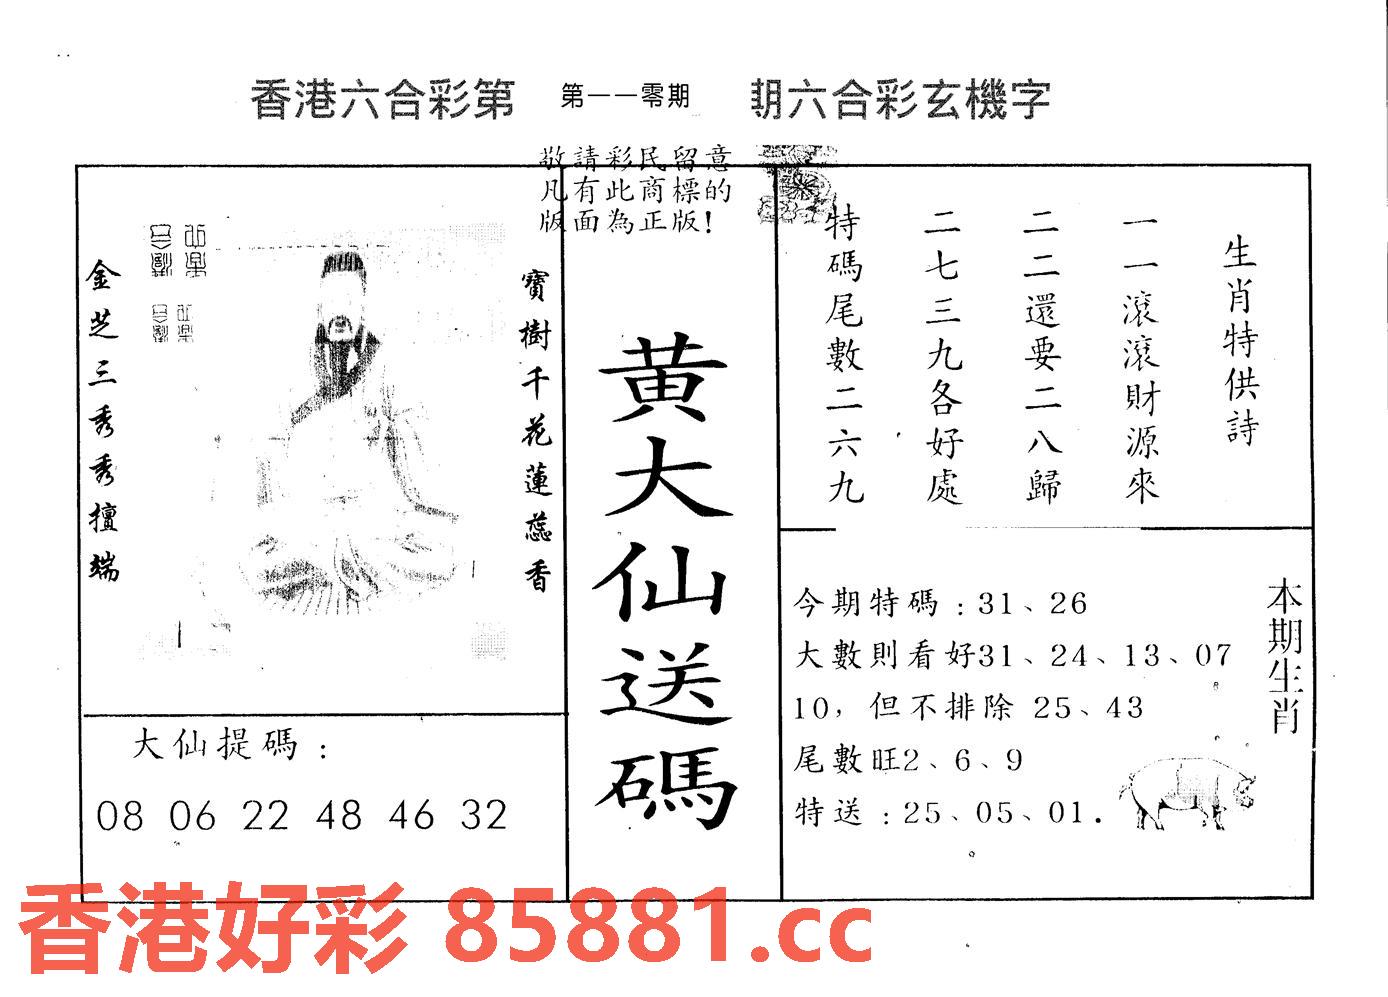 香港六合彩第 第一一零期 期六合彩玄機字
敬請彩民留意
凡有此商標的
版面為正版!
金芝三秀秀擅端
寶樹千花蓮蕊香
黃大仙送碼
生肖特供詩
一一滾滾財源來
二二還要二八歸
二七三九各好處
特碼尾數二六九
大仙提碼:
08 06 22 48 46 32
今期特碼:31、26
大數則看好31、24、13、07
10，但不排除 25、43
尾數旺2、6、9
特送:25、05、01.
本期生肖
香港好彩 85881.cc